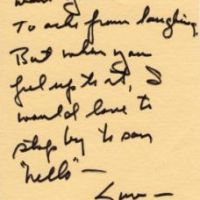 To ache from laughing.
But when you
feel up to it, I
would love to
stop by to say
"hello" —